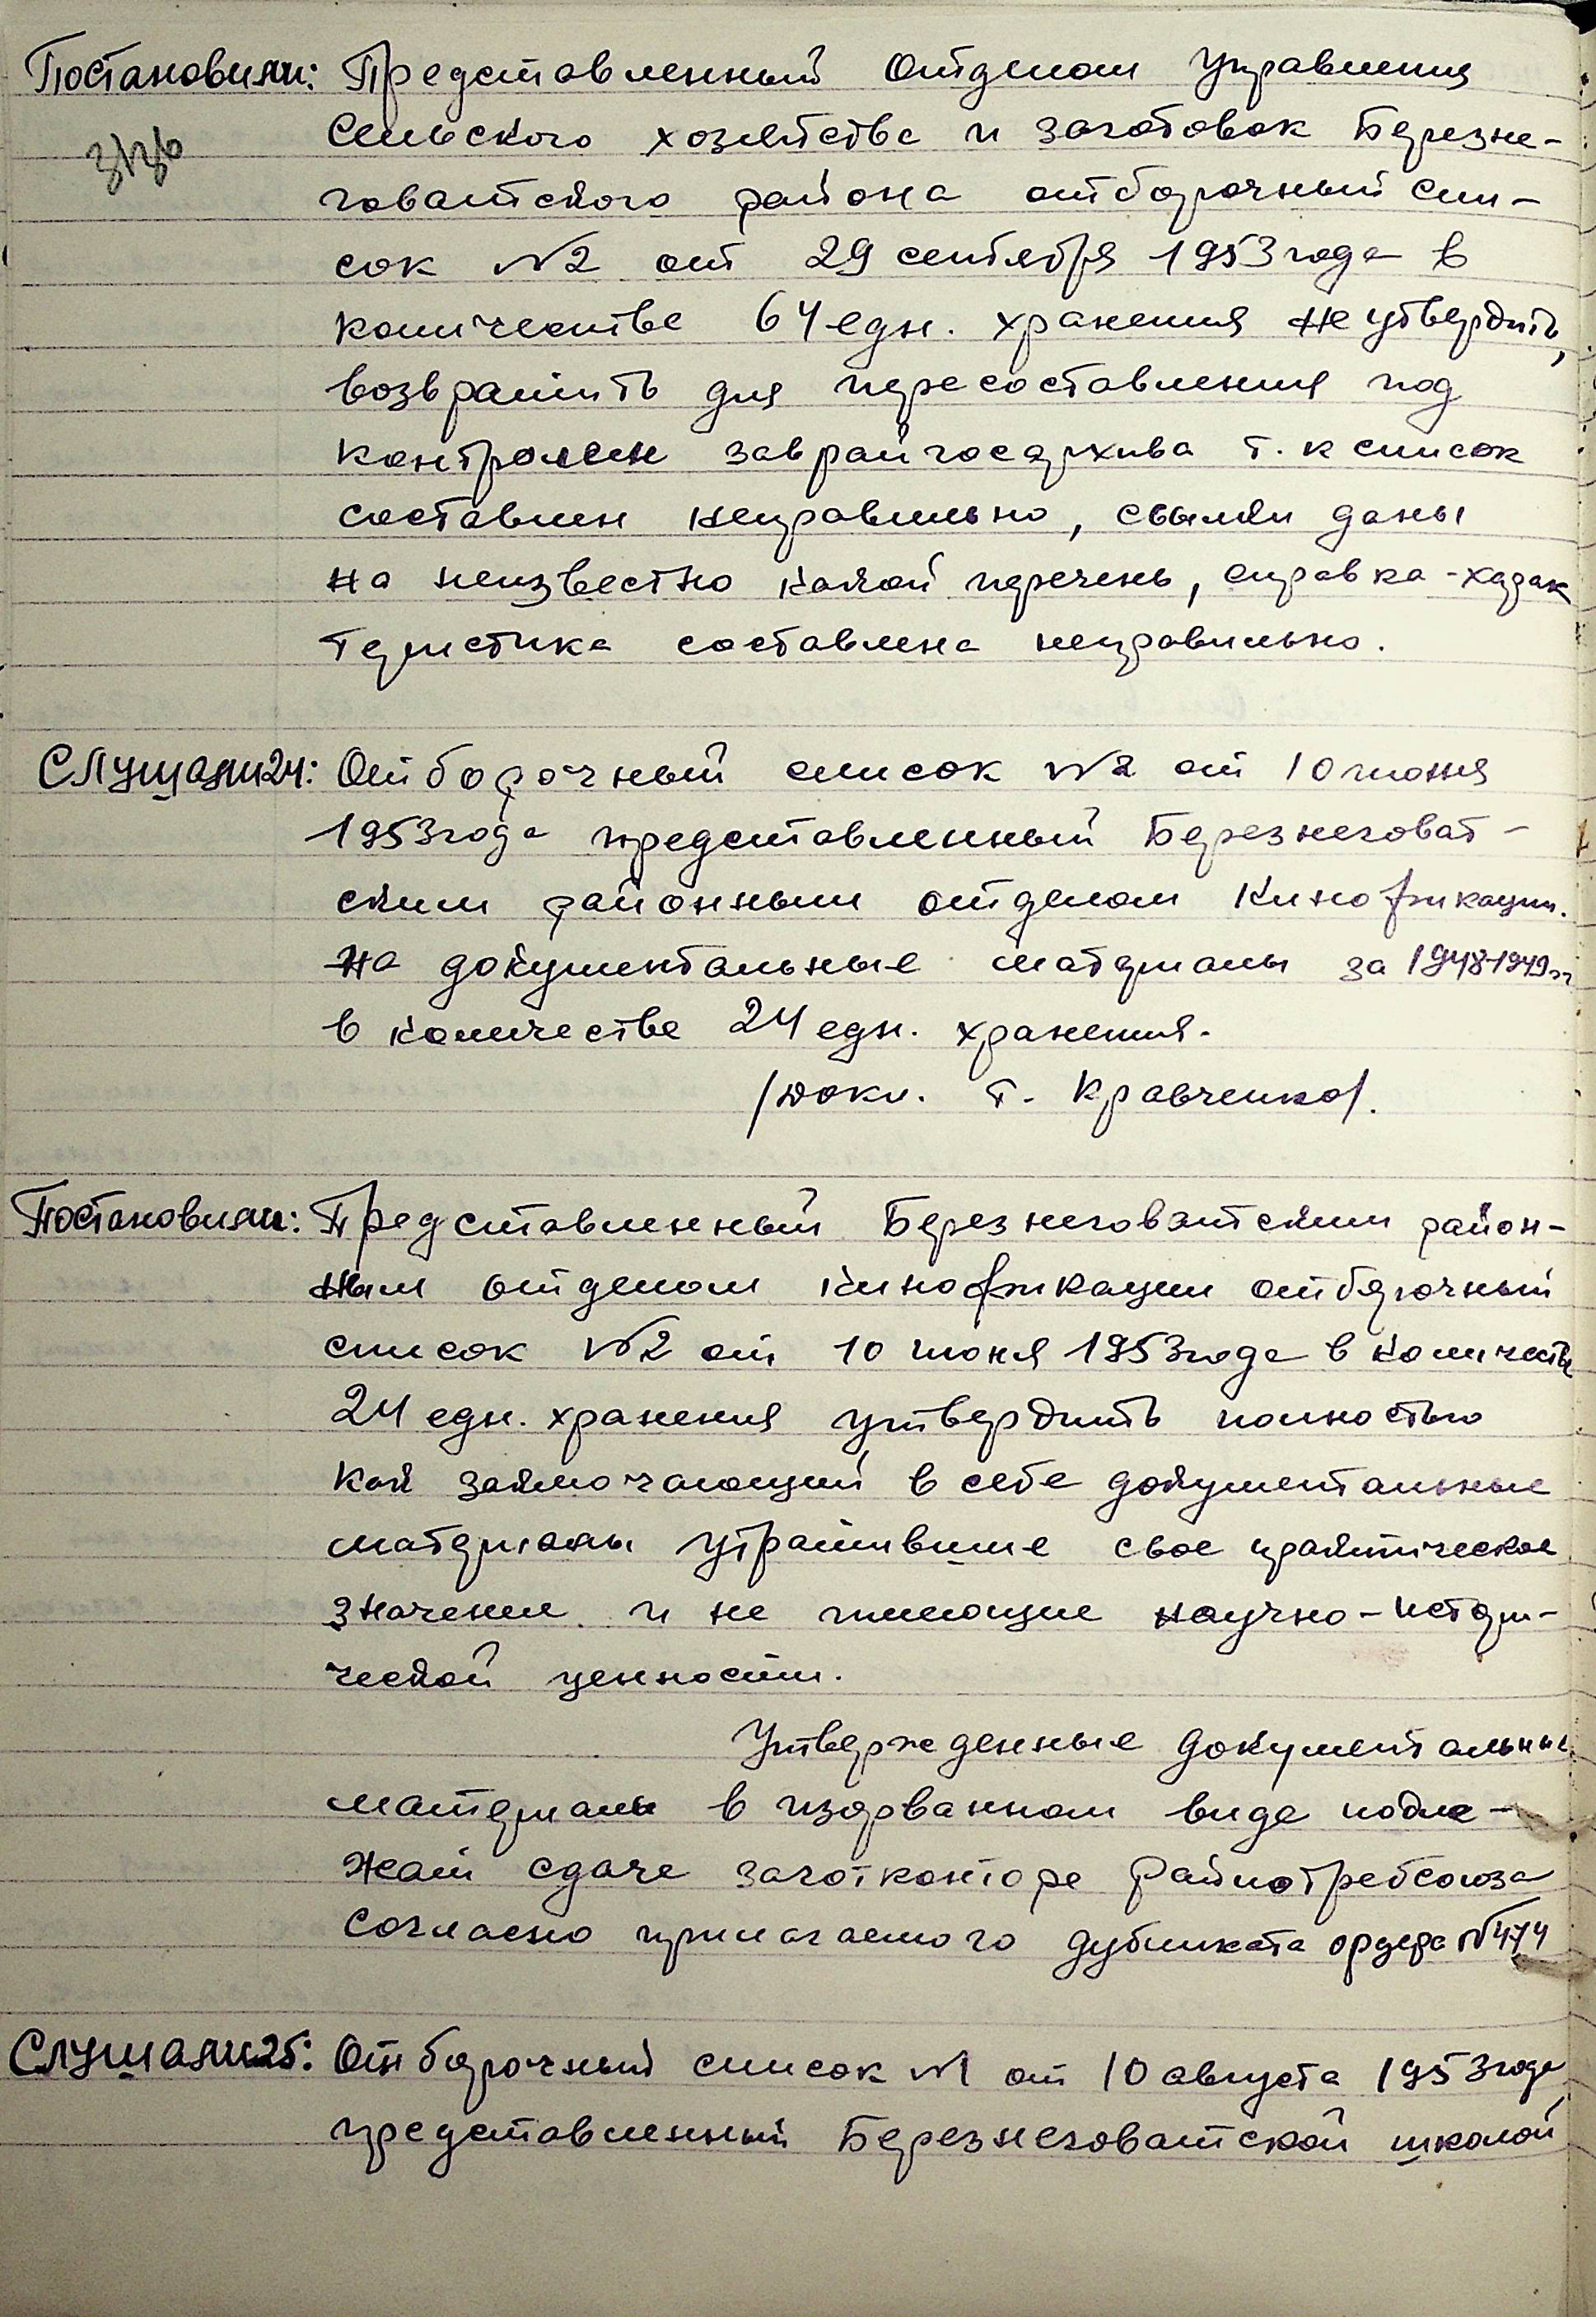 Постановили: Представленный Отделом Управления
Сельского хозяйства и заготовок Березне-
говатского района отборочный спи-
сок №2 от 29 сентября 1953 года в
количестве 64 едн. хранения не утвердить,
возвратить для пересоставления под
контролем заврайгосархива т.к список
составлен неправильно, ссылки даны
на неизвестно какой перечень, справка-харак
теристика составлена неправильно.
Слушали 24: Отборочный список №2 от 10 июня
1953 года представленный Березнеговат-
ским районным отделом Кинофикации.
на документальные материалы за 1948-1949гг
в количестве 24 едн. хранения.
/докл. т. Кравченко/.
Постановили: Представленный Березнеговатским район-
ным отделом кинофикации отборочный
список №2 от 10 июня 1953 года в количестве
24 едн. хранения утвердить полностью
как заключающий в себе документальные
материалы утратившие свое практическое
значение и не имеющие научно-истори-
ческой ценности.
Утвержденные документальные
материалы в изорванном виде подле-
жат сдаче заготконторе райпотребсоюза
согласно прилагаемого дубликата ордера №474
Слушали 25: Отборочный список №1 от 10 августа 1953 года
представленный Березнеговатской школой